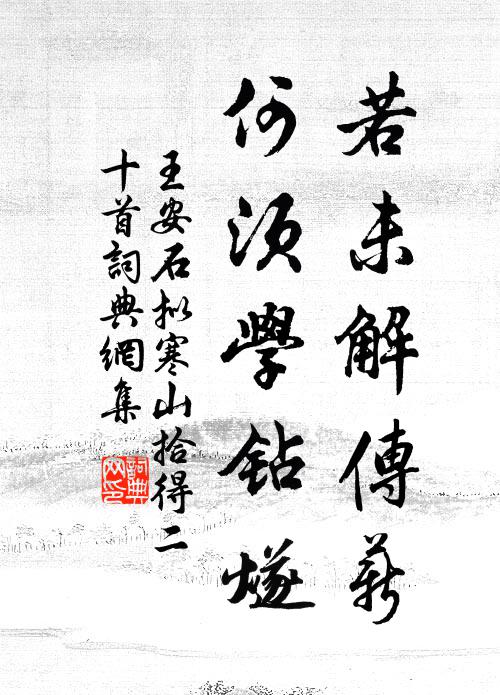 若未解傳薪
何須學鉆燧
王安石擬寒山拾得二
十首詞典網集
詞典
网印